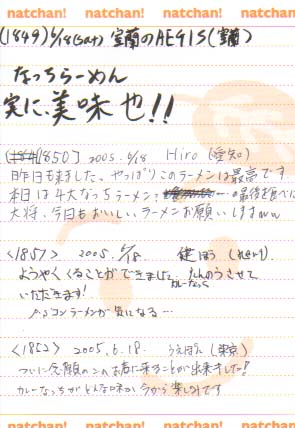 natchan! natchan! natchan! natchan!
(1849) 6/18(sat) 室蘭のAEGIS(室蘭)
なっちらーめん
実に美味也!!
(1850) 2005.6/18 Hiro(愛知)
昨日も来ました。やっぱりこのラーメンは最高です
本日は4大なっちラーメン の最後を食べに
大将、今日もおいしいラーメンお願いします
<1851> 2005.6/18. 健ぼう
ようやくくることができました。 カレーなっち たんのうさせて
いただきます!
ベーコンラーメンが気になる…
<1852> 2005.6.18. うえぽん(東京)
ついに念願のこのお店に来ることが出来ました!!
カレーなっちがどんな味か今から楽しみです
natchan! natchan! natchan! natchan!